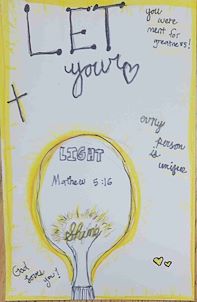 LET
your
you
were
ment for
greatness!
every
person
is
unique
LIGHT
Matthew 5:16
Shine
God
loves
you!